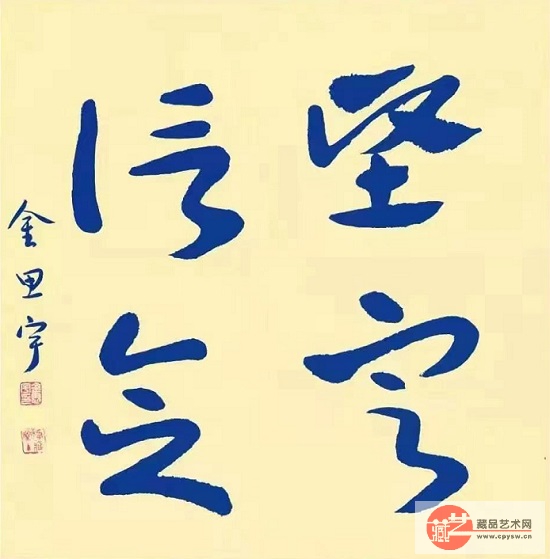 坚定
信念
金思宇
藏艺
藏品艺术网
www.cpysw.cn